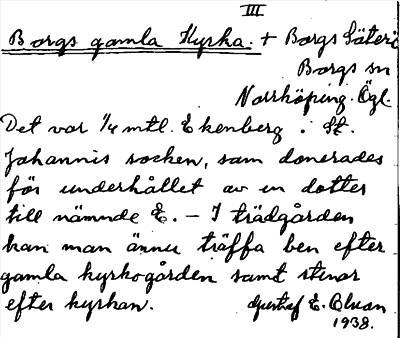 III
Borgs gamla Kyrka. + Borgs Säteri
Borgs sn
Norrköping. Ögl.
Det var 1/4 mtl. Ekenberg i St.
Johannis socken, som donerades
för underhållet av en dotter
till nämnde E. – I trädgården
kan man ännu träffa ben efter
gamla kyrkogården samt stenar
efter kyrkan.
Gustaf E.
1938.